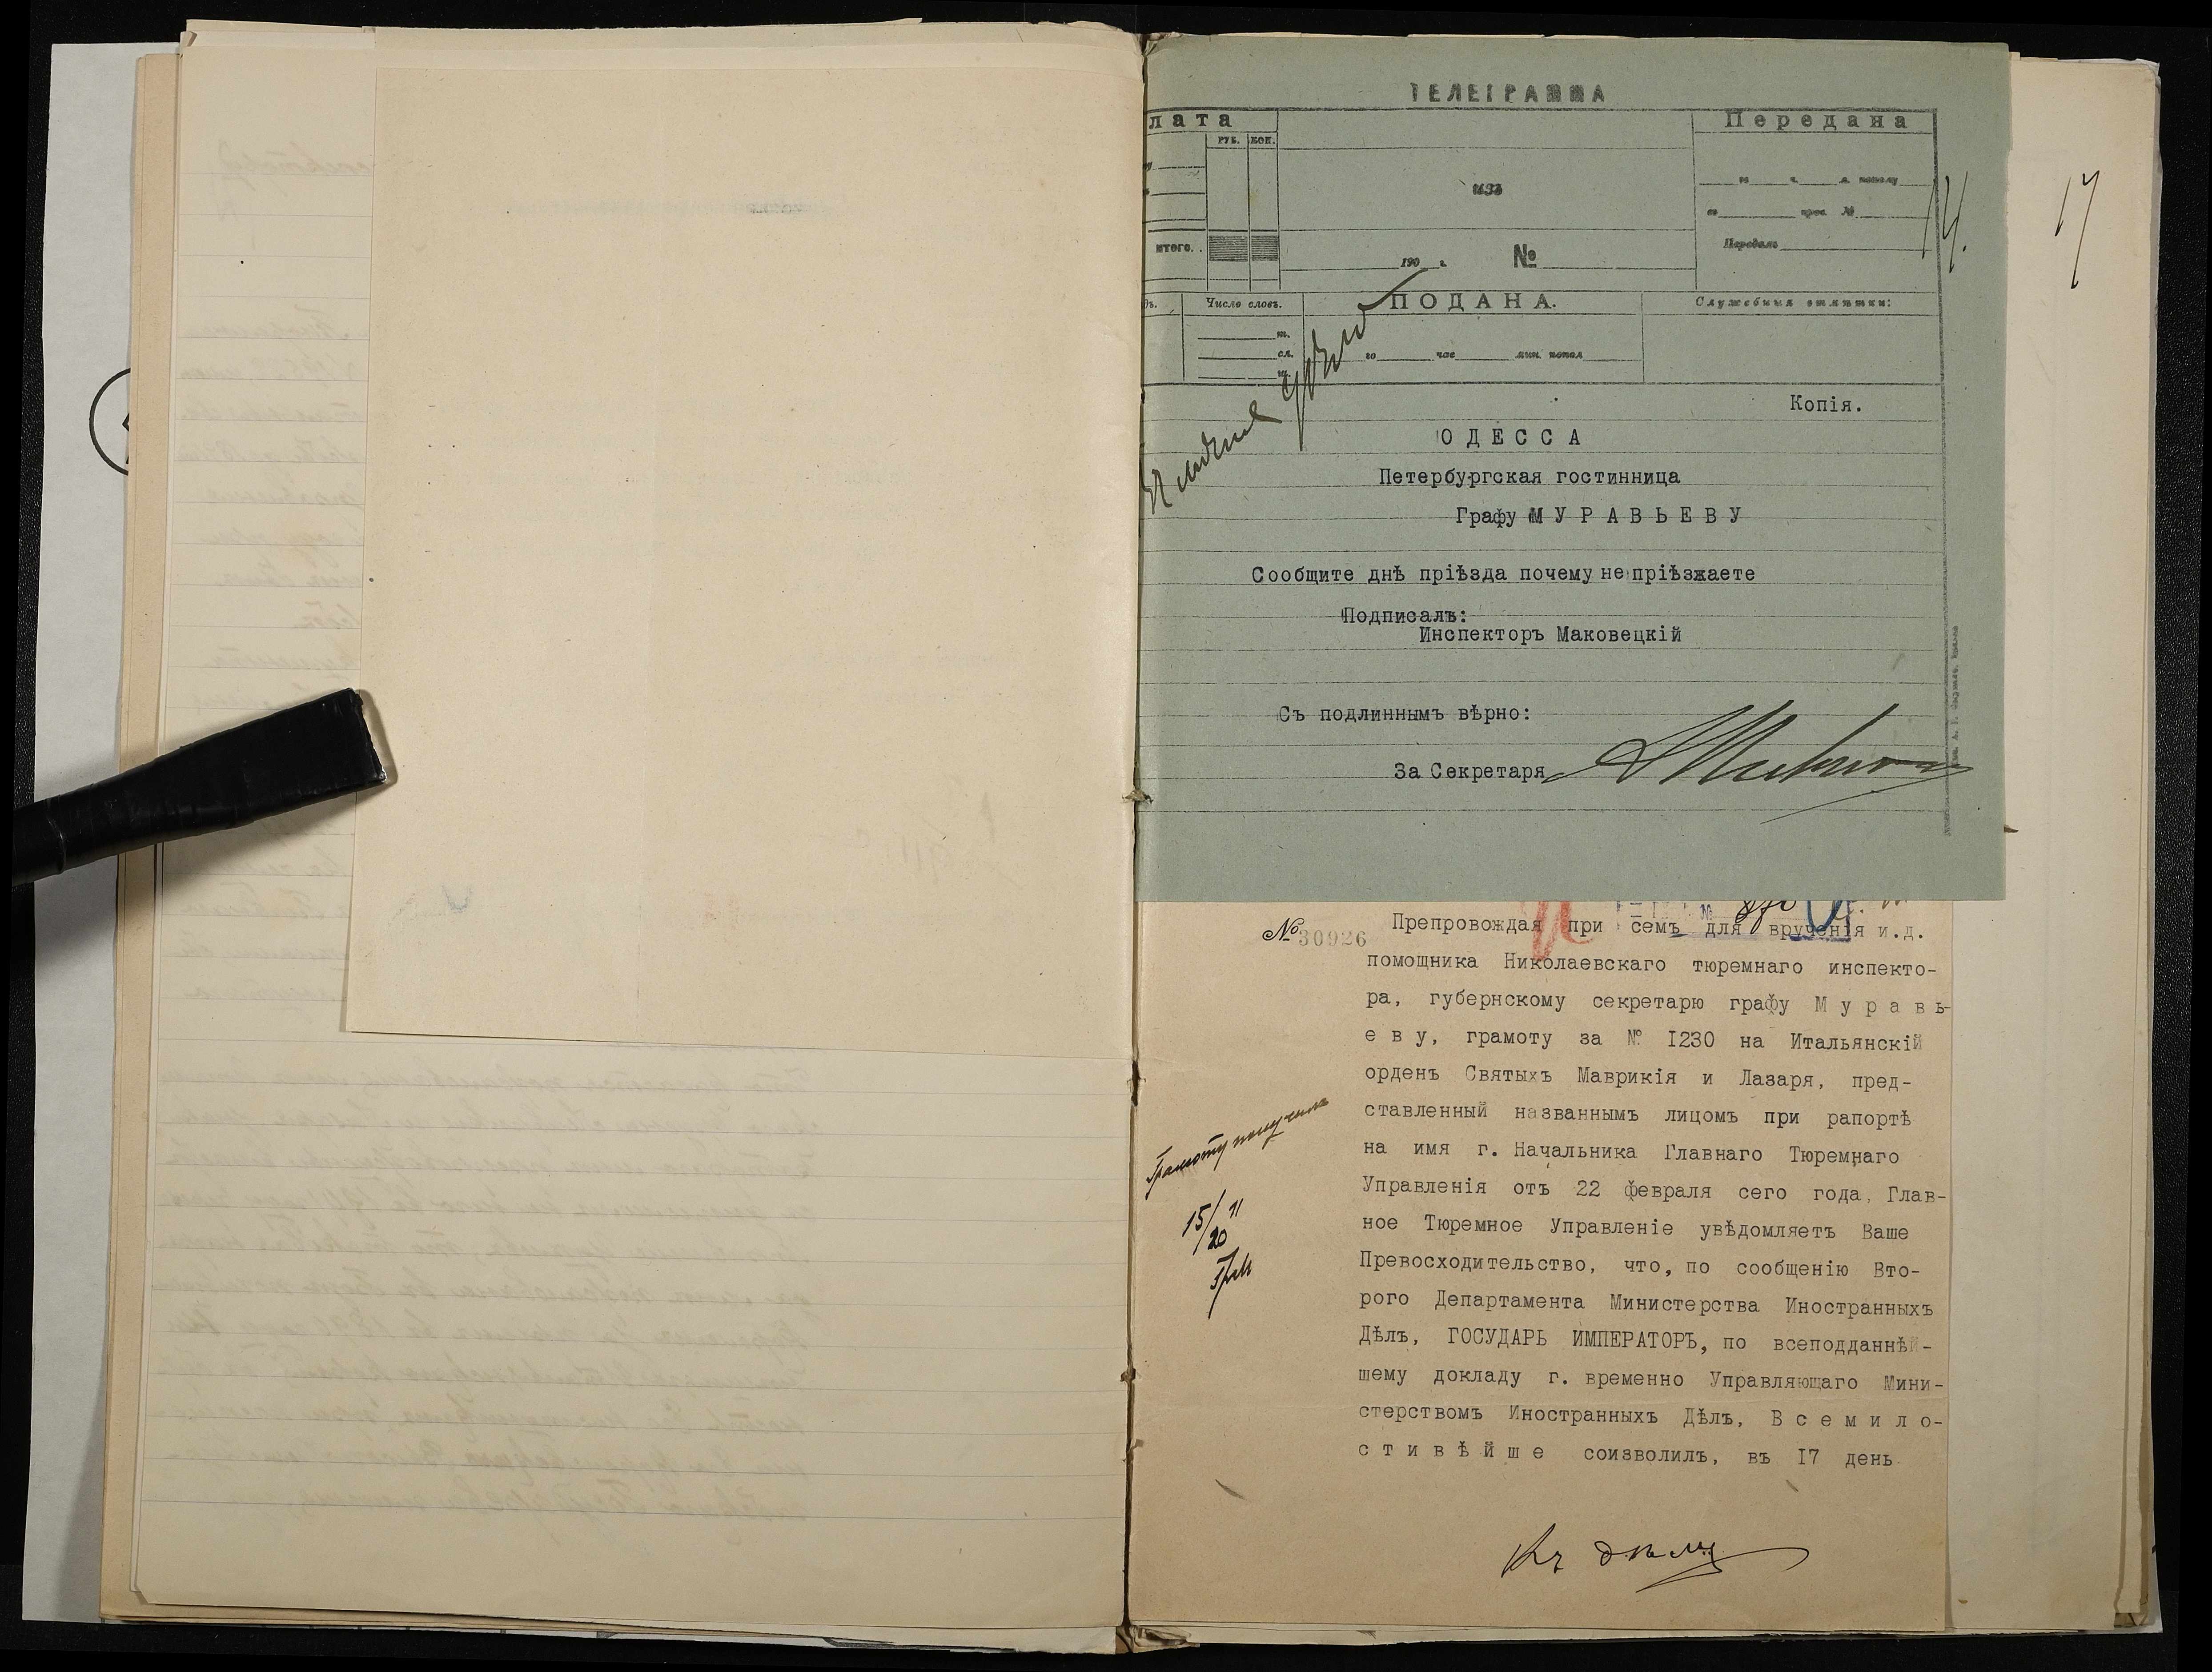 ТЕЛЕГРАММА
лата
РУБ. КОП.
ИТОГО.
ИЗЪ
190 г. №
Передана
го ч. м. полу
по пров. №
Передалъ
14.
17
Число словъ.
ПОДАНА.
го час мин. попол
Служебныя отмѣтки:
сл.
Копія.
ОДЕССА
Петербургская гостинница
Графу МУРАВЬЕВУ
Сообщите днѣ пріѣзда почему не пріѣзжаете
Подписалъ:
Инспекторъ Маковецкій
Съ подлиннымъ вѣрно:
За Секретаря
№ 30926
Препровождая при семъ для врученія и.д.
помощника Николаевскаго тюремнаго инспекто-
ра, губернскому секретарю графу Муравь-
еву, грамоту за № I230 на Итальянскій
орденъ Святыхъ Маврикія и Лазаря, пред-
ставленный названнымъ лицомъ при рапортѣ
на имя г. Начальника Главнаго Тюремнаго
Управленія отъ 22 февраля сего года, Глав-
ное Тюремное Управленіе увѣдомляетъ Ваше
Превосходительство, что, по сообщенію Вто-
рого Департамента Министерства Иностранныхъ
Дѣлъ, ГОСУДАРЬ ИМПЕРАТОРЪ, по всеподданнѣй-
шему докладу г. временно Управляющаго Мини-
стерствомъ Иностранныхъ Дѣлъ, Всемило-
стивѣйше соизволилъ, въ I7 день
Грамоту получилъ
15/
20
Къ дѣлу